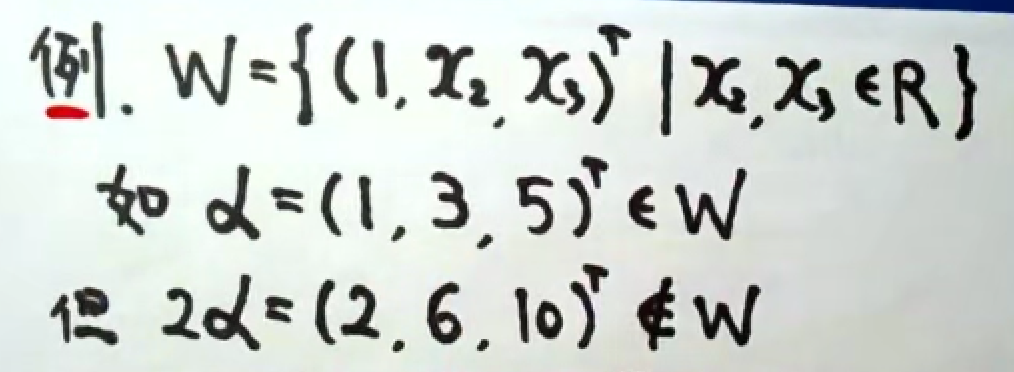 例. W={(1, x₂, x₃)ᵀ | x₂, x₃ ∈R}
如 α=(1, 3, 5)ᵀ ∈ W
但 2α=(2, 6, 10)ᵀ ∉ W